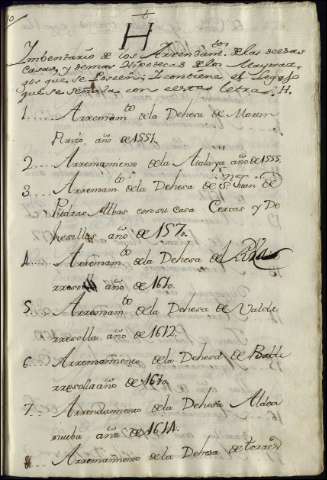 H
Imbentario de los Arrendamtos. de las deesas
Casas, y demas Hipotecas de los Mayoraz
gos que se Poseen, y contiene el Legajo
que se señala con esta letra, H.
1. Arrendamto. de la Dehesa de
año de 1551.
2. Arrendamiento de la Atalaya año de 1555.
3. Arrendamto. de la Dehesa de Sn. Juan de
Piedras Albas con su casa Cercas y De
hesillas año de 157
4. Arrendamto. de la Dehesa de
año de 16
5. Arrendamto. de la Dehesa de Valde
rresolla año de 1612.
6. Arrendamiento de la Dehesa de Balde
rresolla año de 16
7. Arrendamiento de la Dehesa Aldea
nueba año de 1611.
8. Arrendamiento de la Dehesa de